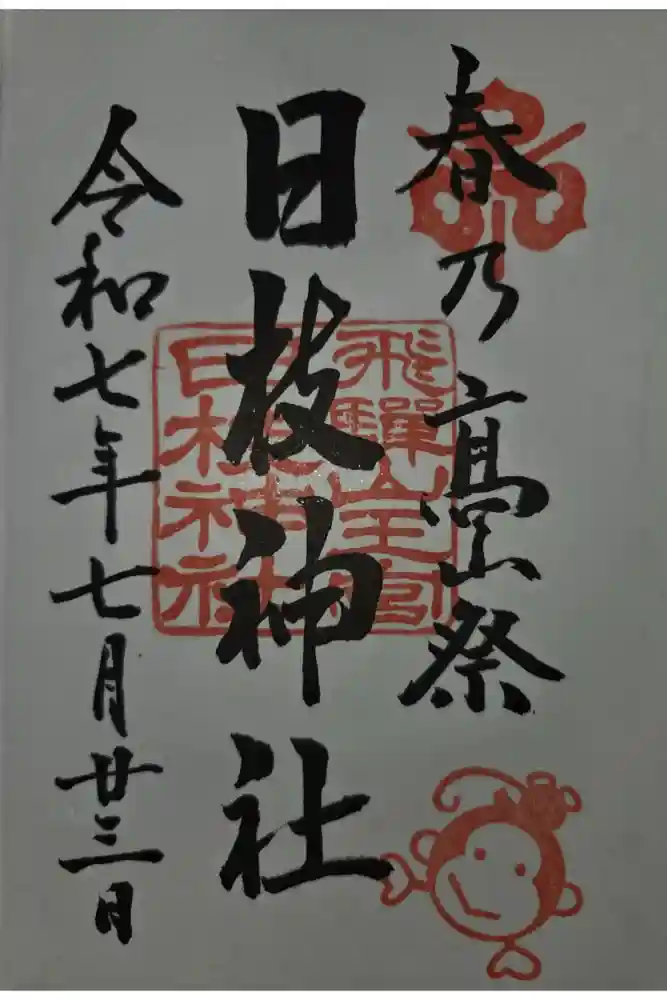 春乃高山祭
日枝神社
令和七年七月廿三日
飛騨山王宮
日枝神社